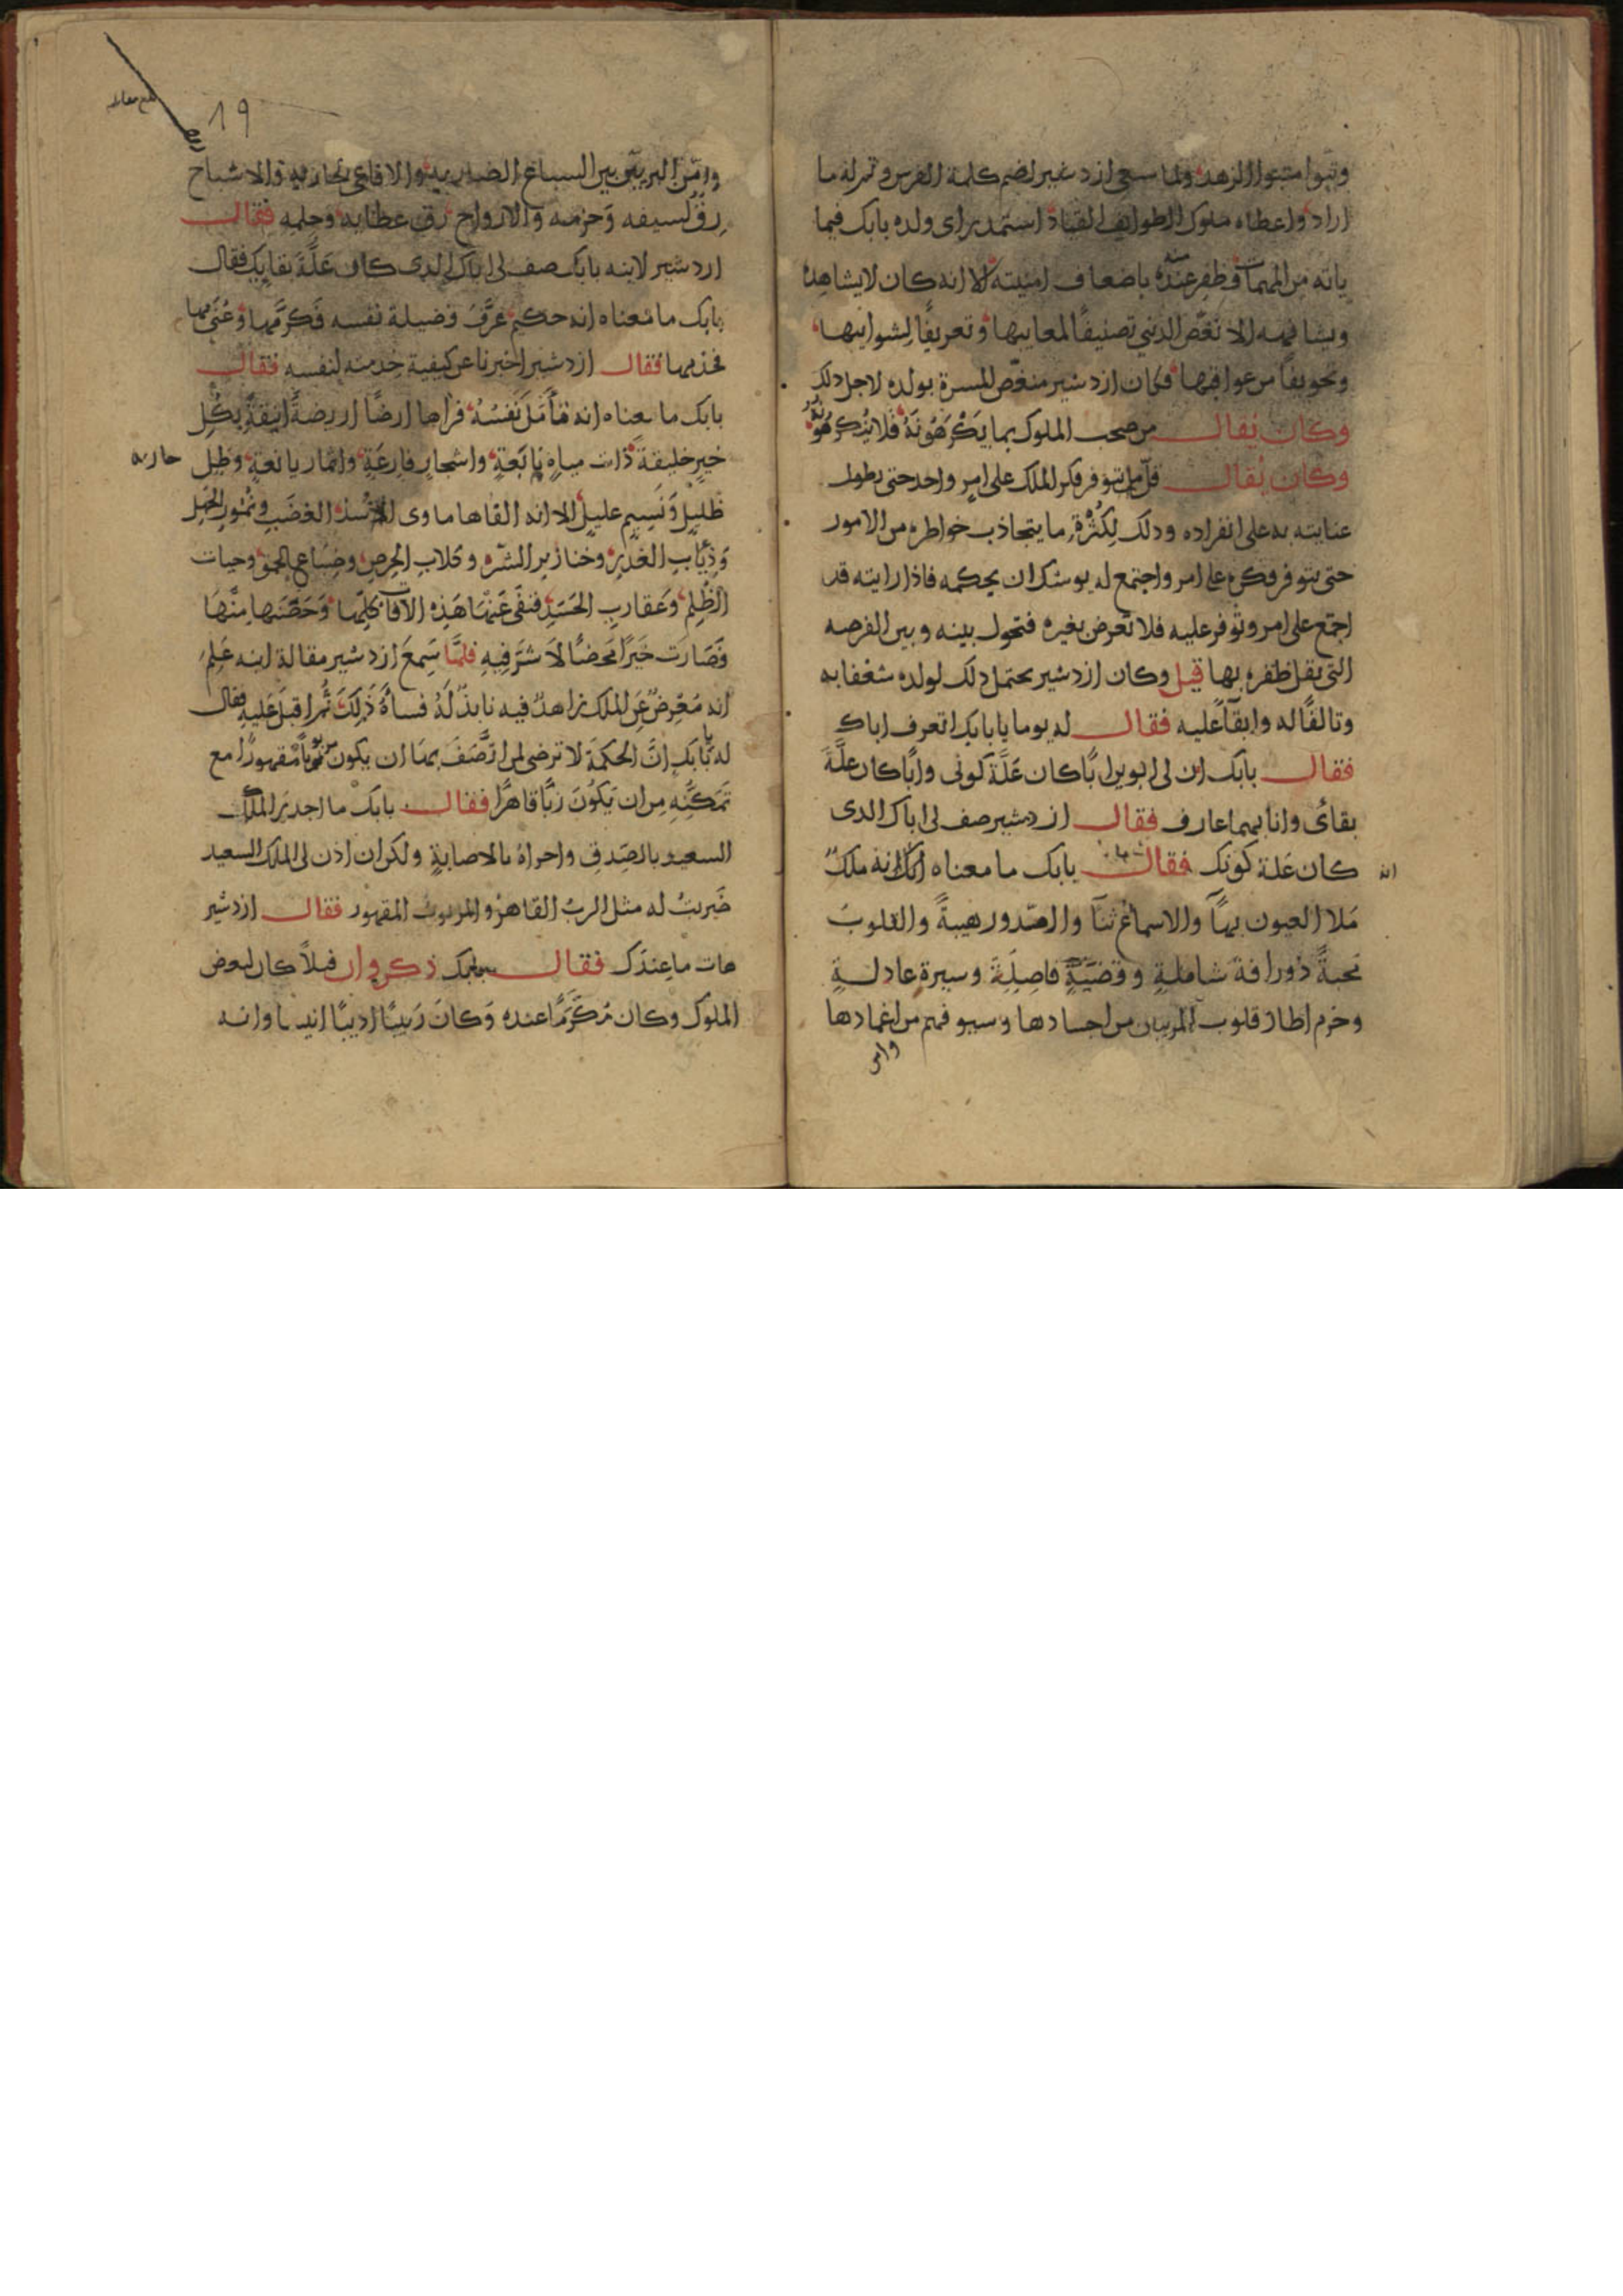 وتبوا متبوا الزهد ولما سعى ازدشير لضم كلمة الفرس وتم له ما
اراد واعطاه ملوك الطوايف القياد استمد براى ولده بابك فيما
ياته من المهمات فظفر عنده باضعاف امنيته الا انه كان لايشاهده
ويشافهه الا نغص الدنيى تصنيفًا لمعايبها وتعريفًا لشوايبها
وتخويفًا من عواقبها فكان ازدشير منغص المسرة بولده لاجل ذلك
وكان يُقال من صحب الملوك بما يَكْرَهُونَهُ فَلا
وكان يُقال قلّ ما يتوفر فكر الملك على امرٍ واحد حتى يطول
عنايته به على انفراده وذلك لِكَثْرَةِ ما يتجاذب خواطره من الامور
حتى يتوفر فكره على امر واجتمع له يوشك ان يحكمه فاذا رايته قد
اجتمع على امر وتوفر عليه فلا تعرض بغيره فتحول بينه وبين الفرصه
التى يقل ظفره بها قيل وكان ازدشير يحتمل ذلك لولده شغفا به
وتالفًا له وابقآ عليه فقال له يوما يا بابك اتعرف اباك
فقال بابك ان لى ابوين ابًا كان عَلَّة كونى وابًا كان علَّةَ
بقائى وانا بهما عارف فقال ازدشير صف لى اباك الذى
كان عَلة كونك فقال بابك ما معناه انه ملكٌ
مَلا العيون بهآ والاسماع ثنآ والصّدور هيبةً والقلوبَ
محبةً ذو رافة شاملةٍ وقضيَّةٍ فاصِلَةٍ وسيرة عادلةٍ
وحزم اطار قلوب المريبان من اجسادها وسيوفهم من اغمادها
وامن
19
وامّن البريّين بين السباع الضاريه والافاعى والاشباح
رِقُّ لسيفه وَحزمه والارواح رق عطايه وحلمهِ فقال
ازدشير لابنه بابك صف لى اباك الذى كان عَلَّةَ بقايِك فقال
بابك ما مَعناه انه حكيم عَرَّف فضيلة نفسه فَكرَّمها وَعُنَى بها
فخدمها فقال ازدشير اخبرنا عن كيفية خدمته لنفسه فقال
بابك ما معناه انه تَأَمَّلَ نَفسَهُ فراها ارضًا اريضةً انيقةً بِكُلِّ
خيرٍ خليقةً ذات مياهٍ نابَعةٍ واشجارٍ فارِعَةٍ واثمار يانعةٍ وظلٍ
ظَليلٍ وَنَسيمٍ عليلٍ الا انه القاها ماوى لأُسْدِ الغضَبِ ونُمُورِ الجَهلِ
وَذِيَابِ الغَدرِ وخنازير الشَّره وكلابِ الحِرصِ وضِباعِ الحمق وحيات
الظُلِم وَعَقاربِ الحَسَدِ فنفى عَنْهَا هَذِهِ الافات كلِّها وَحَصَّنها مِنْهَا
فَصَارَت خَيرًا مَحضًا لاَ شَرَّ فِيهِ فلمَّا سَمِعَ ازدشير مقالة ابنه عَلِمَ
انه مُعْرِضٌ عَنِ الملك زاهدٌ فيه نابذٌ لَهُ فسأَهُ ذَلِكَ ثُم اقبل عَليه فقال
له يَابابك انَّ الحكمَة لا ترضى لمن اتَّصَفَ بهَا ان يكون مَقهورًا مع
تَمَكُّنِهِ مِن ان يَكوُنَ رَبًّا قاهرًا فقال بابَك ما اجدرَ الملك
السعيد بالصدقِ واحراهُ بالاصابةِ ولكن ان اذن لى الملك السعيد
ضَربتُ له مثل الربِ القاهر والمربوب المقهور فقال ازدشير
هات ما عِندَك فقال بابك ذكروا ان فيلاً كان لبعض
الملوك وكان مُكَرَمًا عنده وَكانَ رَبيبًا اديبًا انيسًا وانه